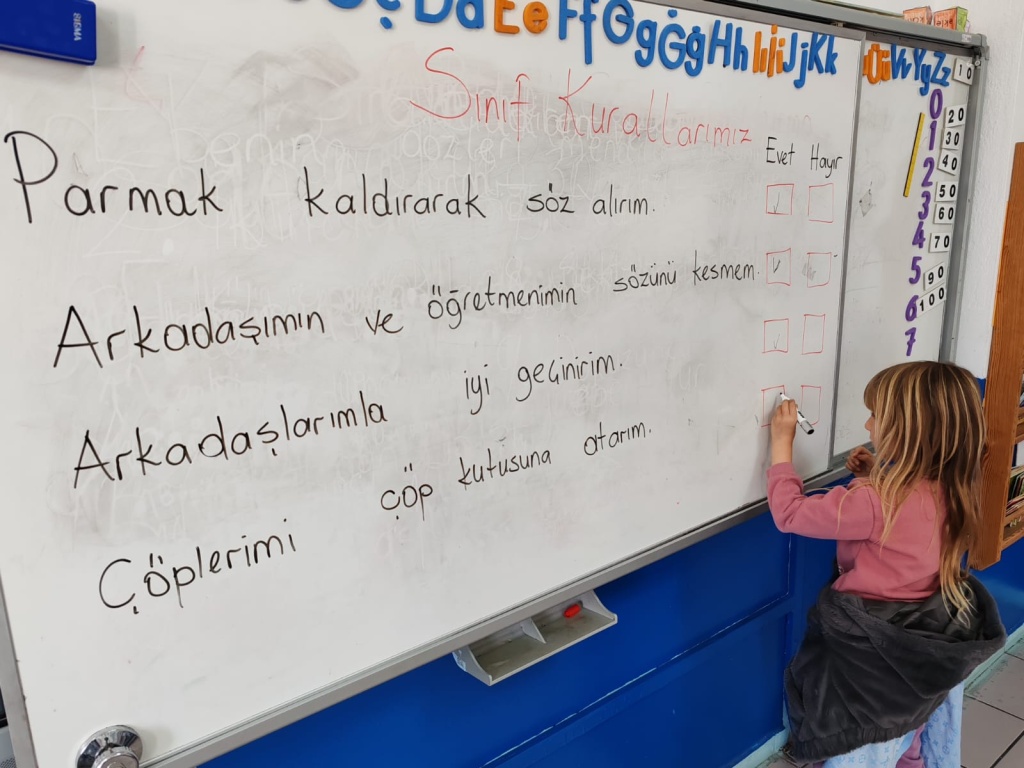 Dd Ee Ff Gg Ğğ Hh Iı İi Jj Kk
Vv Yy Zz
SIGMA
Sınıf Kurallarımız
Evet Hayır
Parmak kaldırarak söz alırım.
Arkadaşımın ve öğretmenimin sözünü kesmem.
Arkadaşlarımla iyi geçinirim.
Çöplerimi çöp kutusuna atarım.
0
1
2
3
4
5
6
7
10
20
30
40
50
60
70
90
100